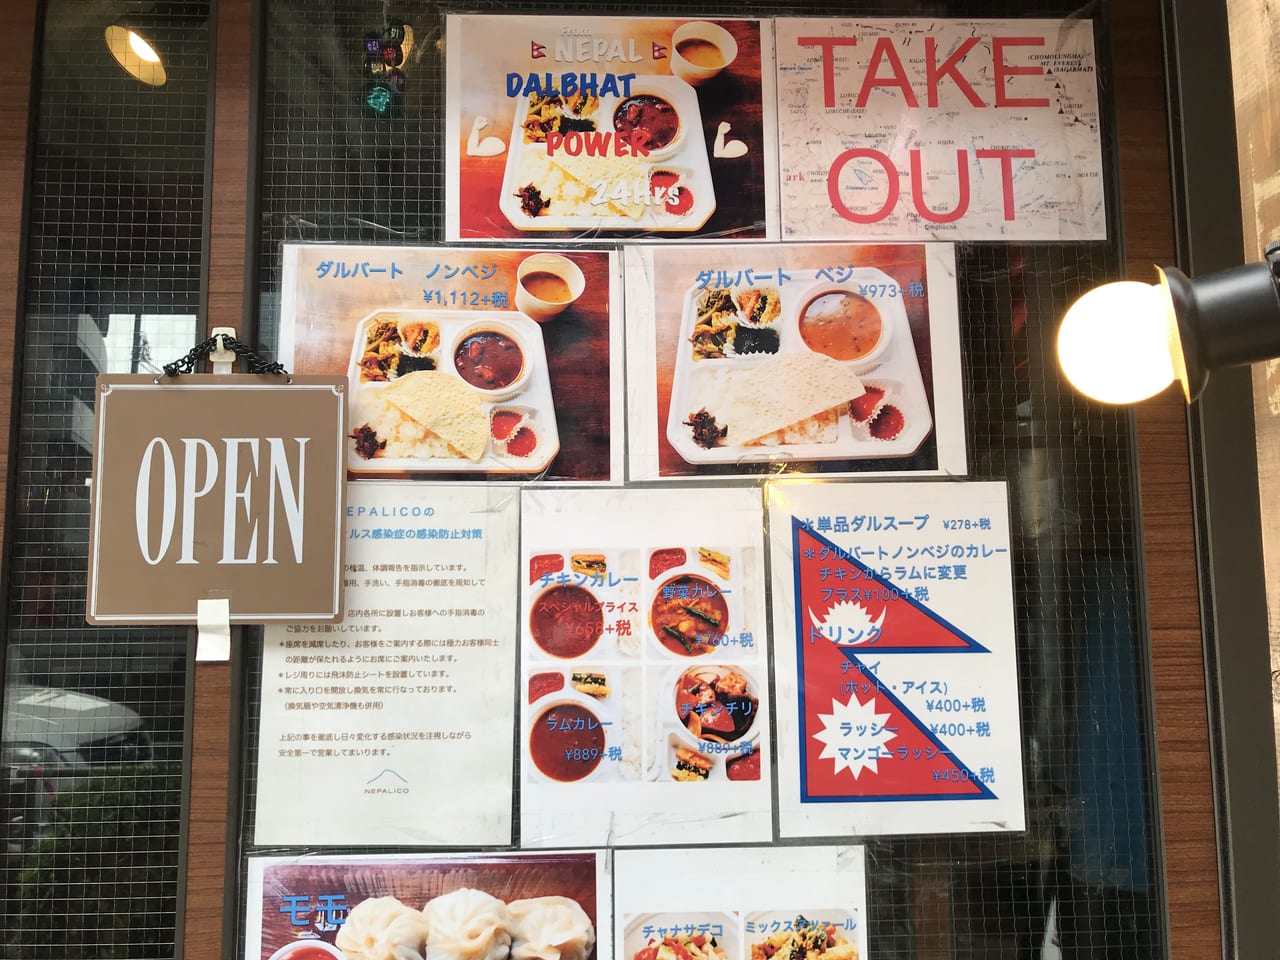 From
NEPAL
DALBHAT
POWER
24Hrs
TAKE
OUT
(CHOMOLUNGMA)
MT. EVEREST
(SAGARMAT
ダルバート ノンベジ
¥1,112+税
ダルバート ベジ
¥973+税
OPEN
EPALICOの
ルス感染症の感染防止対策
検温、体調報告を指示しています。
用、手洗い、手指消毒の徹底を周知して
店内各所に設置しお客様への手指消毒の
ご協力をお願いしています。
*座席を減席したり、お客様をご案内する際には極力お客様同士
の距離が保たれるようにお席にご案内いたします。
*レジ周りには飛沫防止シートを設置しています。
*常に入り口を開放し換気を常に行なっております。
(換気扇や空気清浄機も併用)
上記の事を徹底し日々変化する感染状況を注視しながら
安全第一で営業してまいります。
NEPALICO
チキンカレー
スペシャルプライス
¥658+税
野菜カレー
¥760+税
ラムカレー
¥889+税
チキンチリ
¥889+税
*単品ダルスープ ¥278+税
*ダルバートノンベジのカレー
チキンからラムに変更
プラス¥100+税
ドリンク
チャイ
(ホット・アイス)
¥400+税
ラッシー ¥400+税
マンゴーラッシー
¥450+税
モモ
チャナサデコ
ミックスアツァール